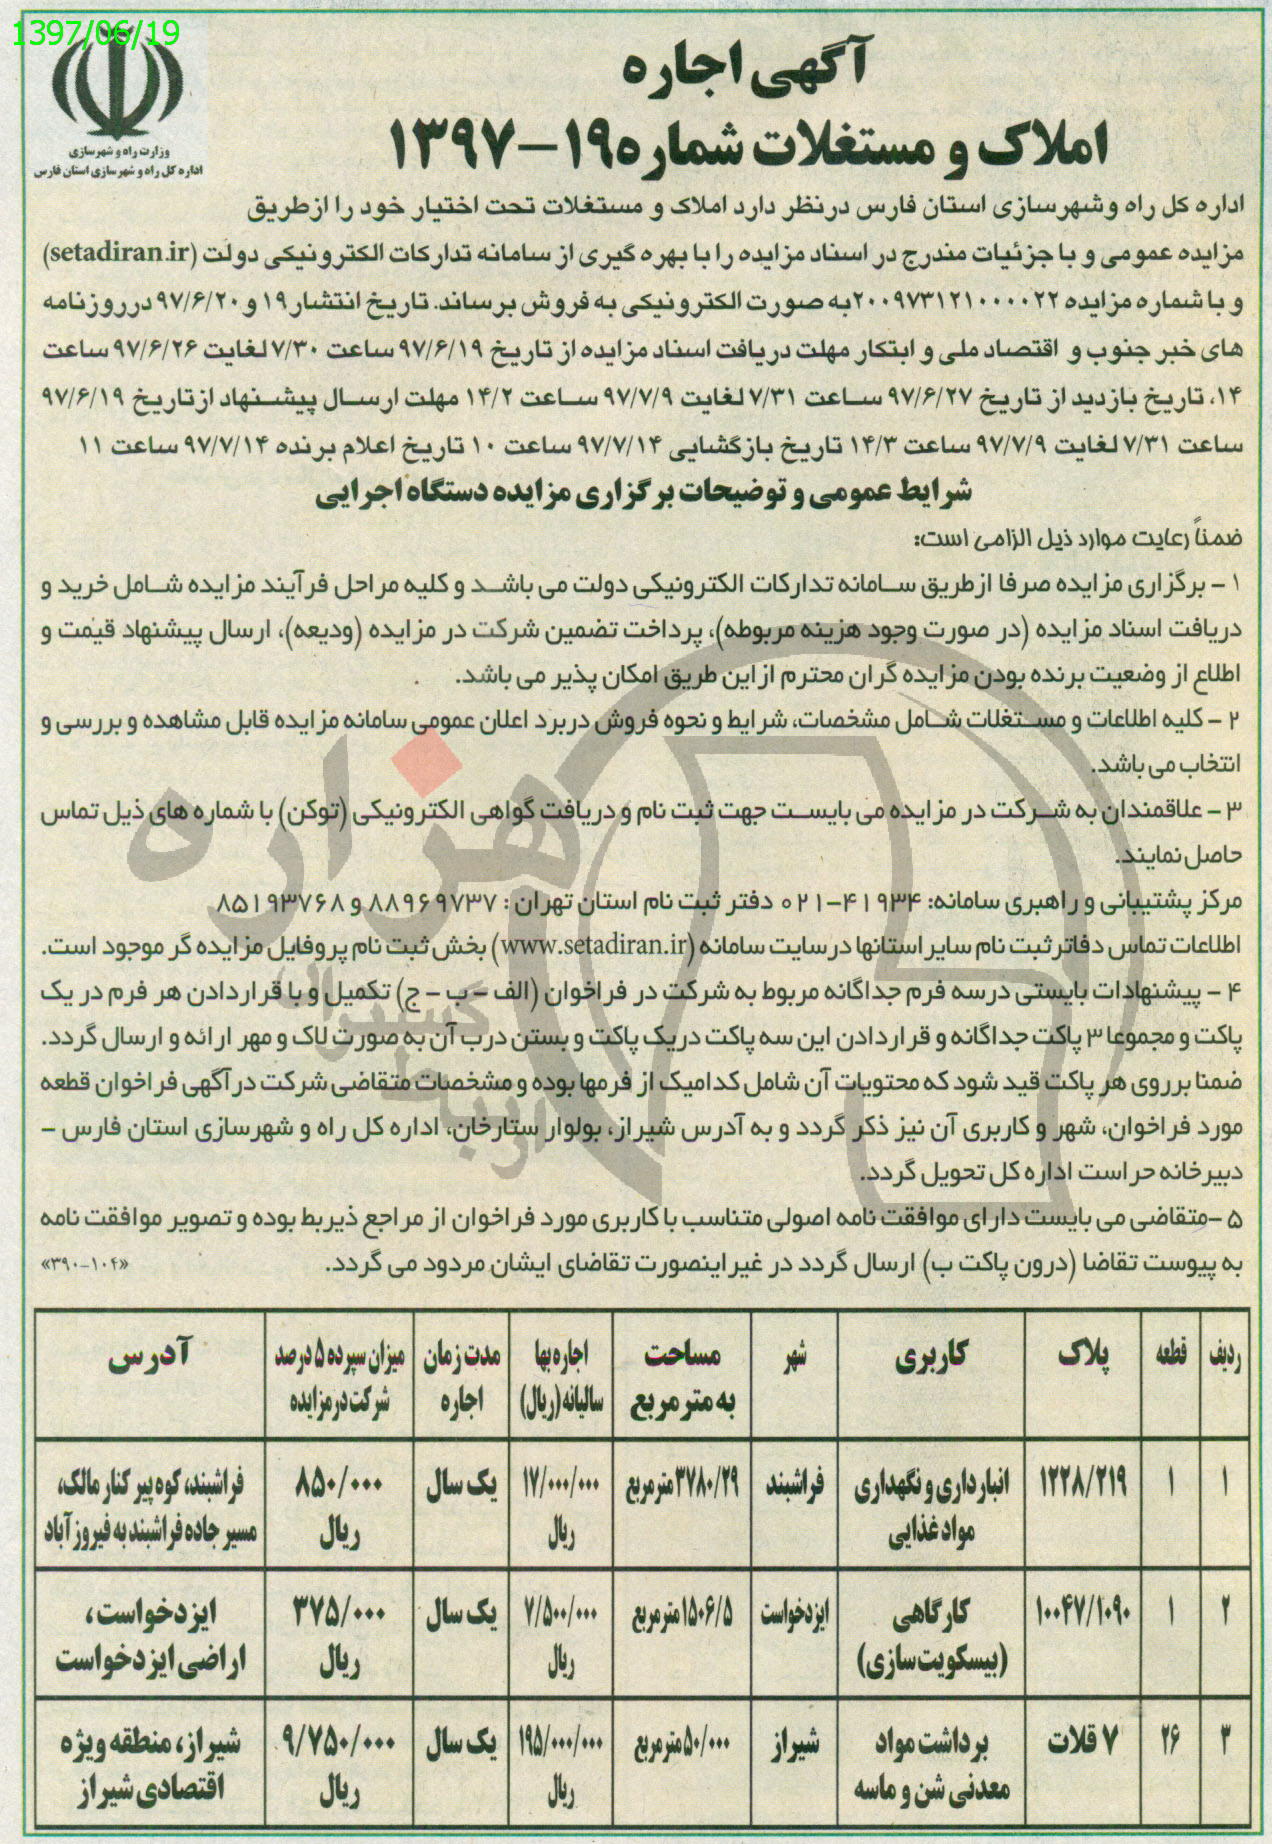 1397/06/19
وزارت راه و شهرسازی
اداره کل راه و شهرسازی استان فارس
آگهی اجاره
املاک و مستغلات شماره ۱۹-۱۳۹۷
اداره کل راه وشهرسازی استان فارس درنظر دارد املاک و مستغلات تحت اختیار خود را ازطریق
مزایده عمومی و با جزئیات مندرج در اسناد مزایده را با بهره گیری از سامانه تدارکات الکترونیکی دولت (setadiran.ir)
و با شماره مزایده ۲۰۰۹۷۳۱۲۱۰۰۰۰۲۲به صورت الکترونیکی به فروش برساند. تاریخ انتشار۱۹ و ۹۷/۶/۲۰ درروزنامه
های خبر جنوب و اقتصاد ملی و ابتکار مهلت دریافت اسناد مزایده از تاریخ ۹۷/۶/۱۹ ساعت ۷/۳۰ لغایت ۹۷/۶/۲۶ ساعت
۱۴، تاریخ بازدید از تاریخ ۹۷/۶/۲۷ ساعت ۷/۳۱ لغایت ۹۷/۷/۹ ساعت ۱۴/۲ مهلت ارسال پیشنهاد ازتاریخ ۹۷/۶/۱۹
ساعت ۷/۳۱ لغایت ۹۷/۷/۹ ساعت ۱۴/۳ تاریخ بازگشایی ۹۷/۷/۱۴ ساعت ۱۰ تاریخ اعلام برنده ۹۷/۷/۱۴ ساعت ۱۱
شرایط عمومی و توضیحات برگزاری مزایده دستگاه اجرایی
ضمناً رعایت موارد ذیل الزامی است:
۱ - برگزاری مزایده صرفا ازطریق سامانه تدارکات الکترونیکی دولت می باشد و کلیه مراحل فرآیند مزایده شامل خرید و
دریافت اسناد مزایده (در صورت وجود هزینه مربوطه)، پرداخت تضمین شرکت در مزایده (ودیعه)، ارسال پیشنهاد قیمت و
اطلاع از وضعیت برنده بودن مزایده گران محترم ازاین طریق امکان پذیر می باشد.
۲ - کلیه اطلاعات و مستغلات شامل مشخصات، شرایط و نحوه فروش دربرد اعلان عمومی سامانه مزایده قابل مشاهده و بررسی و
انتخاب می باشد.
۳ - علاقمندان به شرکت در مزایده می بایست جهت ثبت نام و دریافت گواهی الکترونیکی (توکن) با شماره های ذیل تماس
حاصل نمایند.
مرکز پشتیبانی و راهبری سامانه: ۴۱۹۳۴-۰۲۱ دفتر ثبت نام استان تهران : ۸۸۹۶۹۷۳۷ و ۸۵۱۹۳۷۶۸
اطلاعات تماس دفاترثبت نام سایراستانها درسایت سامانه (www.setadiran.ir) بخش ثبت نام پروفایل مزایده گر موجود است.
۴ - پیشنهادات بایستی درسه فرم جداگانه مربوط به شرکت در فراخوان (الف - ب - ج) تکمیل و با قراردادن هر فرم در یک
پاکت و مجموعا ۳ پاکت جداگانه و قراردادن این سه پاکت دریک پاکت و بستن درب آن به صورت لاک و مهر ارائه و ارسال گردد.
ضمنا برروی هر پاکت قید شود که محتویات آن شامل کدامیک از فرمها بوده و مشخصات متقاضی شرکت درآگهی فراخوان قطعه
مورد فراخوان، شهر و کاربری آن نیز ذکر گردد و به آدرس شیراز، بولوار ستارخان، اداره کل راه و شهرسازی استان فارس -
دبیرخانه حراست اداره کل تحویل گردد.
۵ -متقاضی می بایست دارای موافقت نامه اصولی متناسب با کاربری مورد فراخوان از مراجع ذیربط بوده و تصویر موافقت نامه
به پیوست تقاضا (درون پاکت ب) ارسال گردد در غیراینصورت تقاضای ایشان مردود می گردد. «۱۰۴-۳۹۰»
ردیف قطعه پلاک کاربری شهر مساحت به متر مربع اجاره بها سالیانه (ریال) مدت زمان اجاره میزان سپرده ۵ درصد شرکت در مزایده آدرس
۱ ۱ ۱۲۲۸/۲۱۹ انبارداری و نگهداری مواد غذایی فراشبند ۳۷۸۰/۲۹ متر مربع ۱۷/۰۰۰/۰۰۰ ریال یک سال ۸۵۰/۰۰۰ ریال فراشبند، کوه پیر کنار مالک، مسیر جاده فراشبند به فیروز آباد
۲ ۱ ۱۰۰۴۷/۱۰۹۰ کارگاهی (بیسکویت سازی) ایزدخواست ۱۵۰۶/۵ متر مربع ۷/۵۰۰/۰۰۰ ریال یک سال ۳۷۵/۰۰۰ ریال ایزدخواست، اراضی ایزدخواست
۳ ۲۶ ۷ قلات برداشت مواد معدنی شن و ماسه شیراز ۵۰/۰۰۰ متر مربع ۱۹۵/۰۰۰/۰۰۰ ریال یک سال ۹/۷۵۰/۰۰۰ ریال شیراز، منطقه ویژه اقتصادی شیراز
هزاره